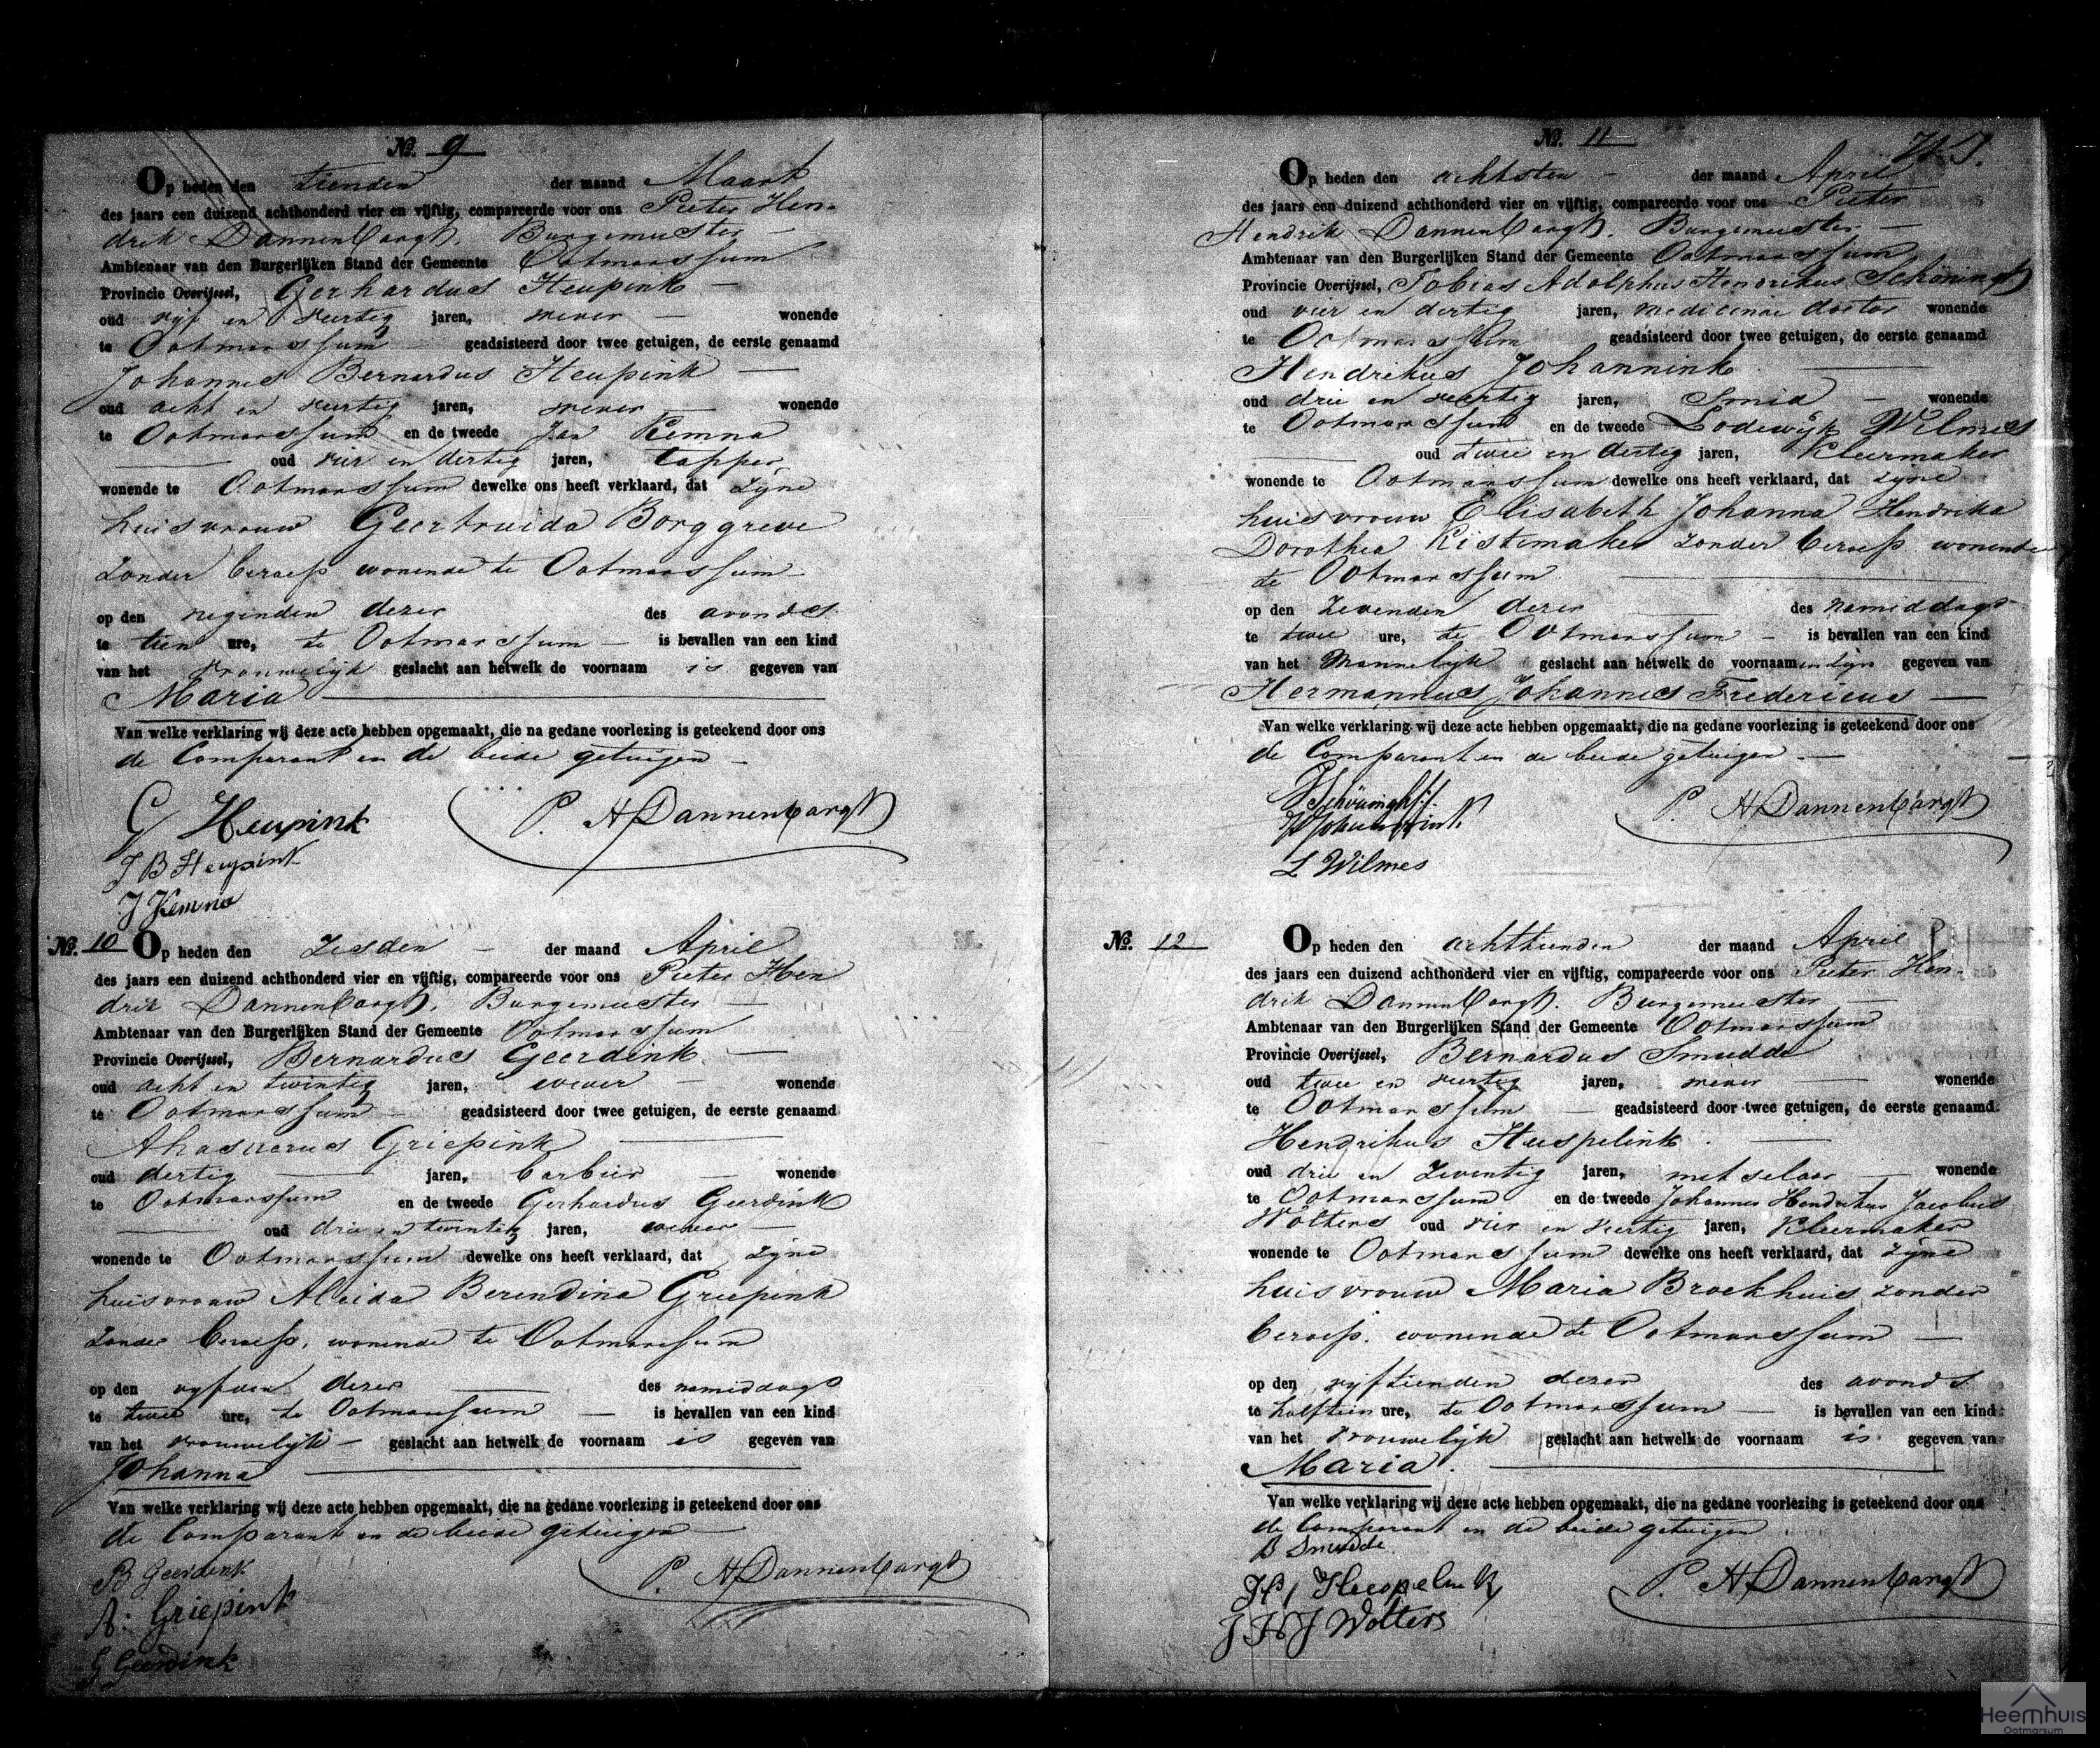 No. 9
Op heden den tienden der maand Maart
des jaars een duizend achthonderd vier en vijftig, compareerde voor ons Pieter Hen-
drik Dannenbargh, Burgemeester
Ambtenaar van den Burgerlijken Stand der Gemeente Ootmarssum
Provincie Overijssel, Gerhardus Heupink
oud vijf en veertig jaren, wever wonende
te Ootmarssum geadsisteerd door twee getuigen, de eerste genaamd
Johannes Bernardus Heupink
oud acht en veertig jaren, wever wonende
te Ootmarssum en de tweede Jan Kemna
oud vier en dertig jaren, tapper
wonende te Ootmarssum dewelke ons heeft verklaard, dat zijne
huisvrouw Geertruida Borggreve
zonder beroep wonende te Ootmarssum
op den neginden dezer des avonds
te tien ure, te Ootmarssum is bevallen van een kind
van het vrouwelijk geslacht aan hetwelk de voornaam is gegeven van
Maria
Van welke verklaring wij deze acte hebben opgemaakt, die na gedane voorlezing is geteekend door ons
de Comparant en de beide getuigen
G Heupink
P. H Dannenbargh
J B Heupink
J Kemna
No. 10 Op heden den zesden der maand April
des jaars een duizend achthonderd vier en vijftig, compareerde voor ons Pieter Hen
drik Dannenbargh, Burgemeester
Ambtenaar van den Burgerlijken Stand der Gemeente Ootmarssum
Provincie Overijssel, Bernardus Geerdink
oud acht en twintig jaren, wever wonende
te Ootmarssum geadsisteerd door twee getuigen, de eerste genaamd
Ahasuerus Griepink
oud dertig jaren, barbier wonende
te Ootmarssum en de tweede Gerhardus Geerdink
oud drie en twintig jaren, wever
wonende te Ootmarssum dewelke ons heeft verklaard, dat zijne
huisvrouw Aleida Berendina Griepink
zonder beroep, wonende te Ootmarssum
op den vyfden dezer des namiddags
te twee ure, te Ootmarssum is bevallen van een kind
van het vrouwelijk geslacht aan hetwelk de voornaam is gegeven van
Johanna
Van welke verklaring wij deze acte hebben opgemaakt, die na gedane voorlezing is geteekend door ons
de Comparant en de beide getuigen
B Geerdink
P. H Dannenbargh
A: Griepink
G Geerdink
No. 11
Op heden den achtsten der maand April
des jaars een duizend achthonderd vier en vijftig, compareerde voor ons Pieter
Hendrik Dannenbargh, Burgemeester
Ambtenaar van den Burgerlijken Stand der Gemeente Ootmarssum
Provincie Overijssel, Tobias Adolphus Hendrikus Schöningh
oud vier en dertig jaren, medicinae doctor wonende
te Ootmarssum geadsisteerd door twee getuigen, de eerste genaamd
Hendrikus Johannink
oud drie en veertig jaren, Smid wonende
te Ootmarssum en de tweede Lodewijk Wilmes
oud twee en dertig jaren, Kleermaker
wonende te Ootmarssum dewelke ons heeft verklaard, dat zijne
huisvrouw Elisabeth Johanna Hendrika
Dorothea Kistemaker zonder beroep wonende
te Ootmarssum
op den zevenden dezer des namiddags
te twee ure, te Ootmarssum is bevallen van een kind
van het Mannelijk geslacht aan hetwelk de voornaamen zijn gegeven van
Hermannus Johannes Fredericus
Van welke verklaring wij deze acte hebben opgemaakt, die na gedane voorlezing is geteekend door ons
de Comparant en de beide getuigen
Schöningh
P. H Dannenbargh
Johannink
L Wilmes
No. 12 Op heden den achttienden der maand April
des jaars een duizend achthonderd vier en vijftig, compareerde voor ons Pieter Hen-
drik Dannenbargh, Burgemeester
Ambtenaar van den Burgerlijken Stand der Gemeente Ootmarssum
Provincie Overijssel, Bernardus Smudde
oud twee en veertig jaren, wever wonende
te Ootmarssum geadsisteerd door twee getuigen, de eerste genaamd
Hendrikus Huspelink
oud drie en zeventig jaren, metselaar wonende
te Ootmarssum en de tweede Johannes Hendrikus Jacobus
Wolters oud vier en veertig jaren, Kleermaker
wonende te Ootmarssum dewelke ons heeft verklaard, dat zijne
huisvrouw Maria Broekhuis zonder
beroep, wonende te Ootmarssum
op den vijftienden dezer des avonds
te halftien ure, te Ootmarssum is bevallen van een kind
van het vrouwelijk geslacht aan hetwelk de voornaam is gegeven van
Maria
Van welke verklaring wij deze acte hebben opgemaakt, die na gedane voorlezing is geteekend door ons
de Comparant en de beide getuigen
B Smudde
P. H Dannenbargh
J H J Wolters
Heemhuis
Ootmarsum